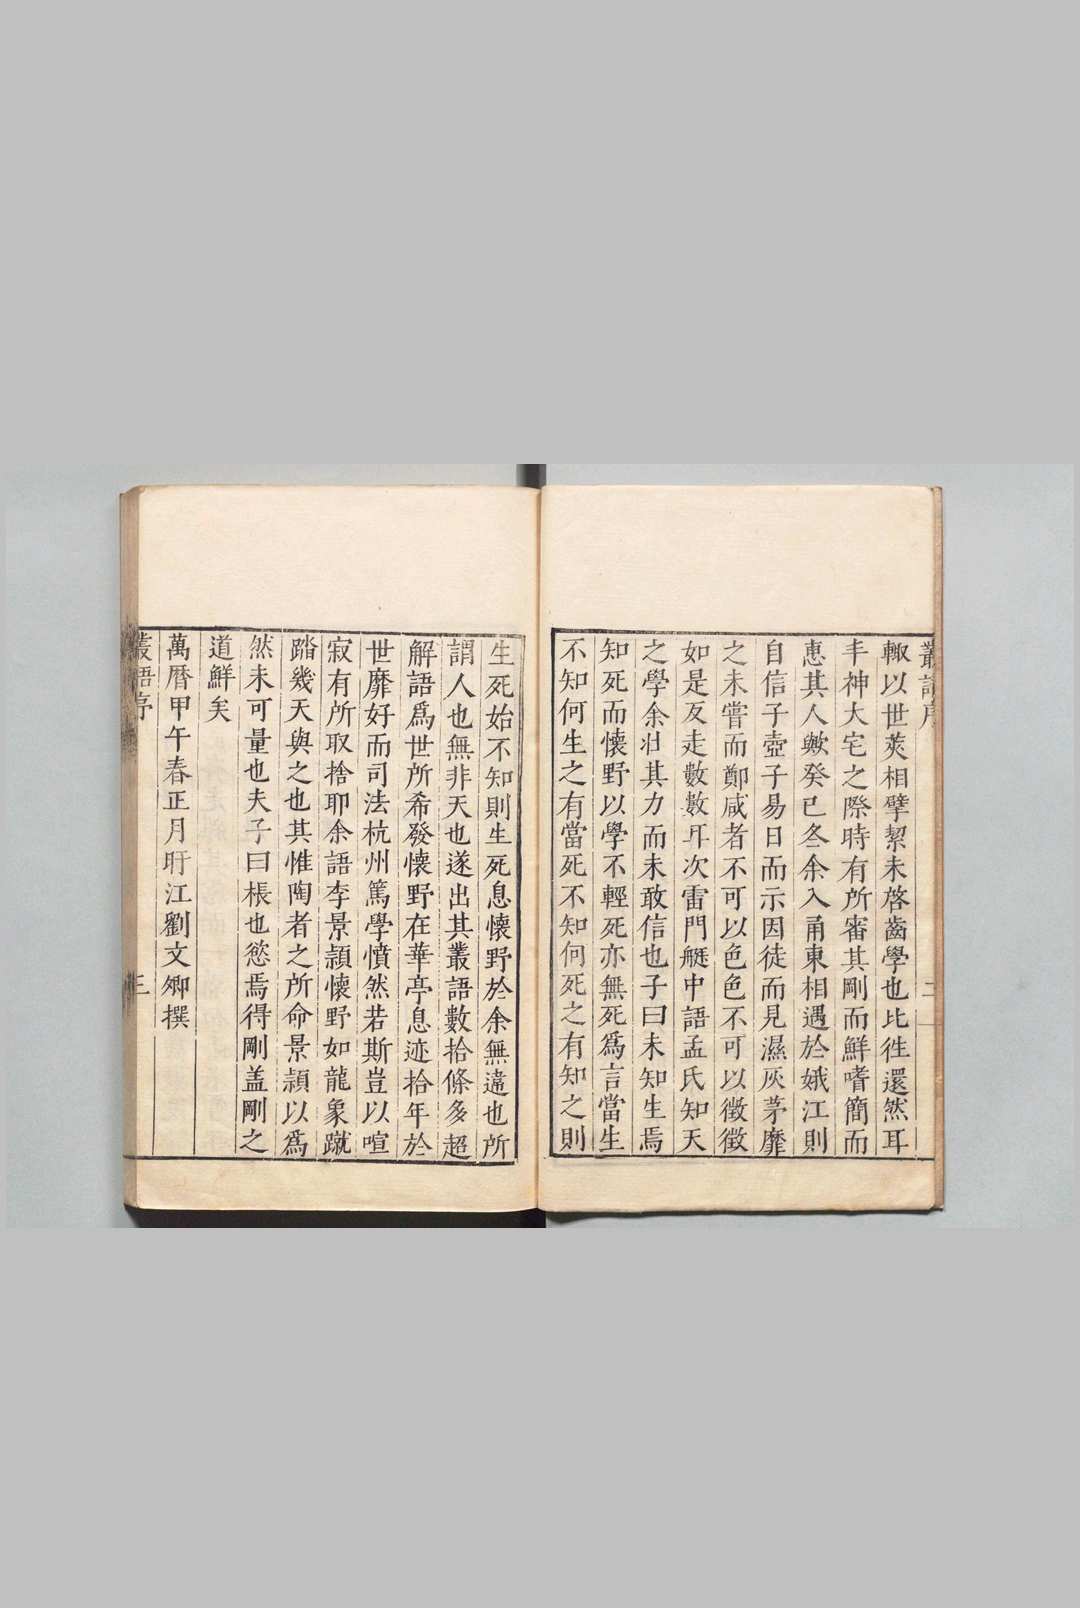 叢語序
二
輙以世莢相擘絜未啓齒學也比徃還然耳
丰神大宅之際時有所審其剛而鮮嗜簡而
惠其人歟癸巳冬余入甬東相遇於娥江則
自信子壺子易日而示因徒而見濕灰茅靡
之未嘗而鄭咸者不可以色色不可以徵徵
如是反走數數耳次雷門艇中語孟氏知天
之學余壯其力而未敢信也子曰未知生焉
知死而懷野以學不輕死亦無死爲言當生
不知何生之有當死不知何死之有知之則
生死始不知則生死息懷野於余無違也所
謂人也無非天也遂出其叢語數拾條多超
解語爲世所希發懷野在華亭息迹拾年於
世靡好而司法杭州篤學憤然若斯豈以喧
寂有所取捨耶余語李景頴懷野如龍象蹴
踏幾天與之也其惟陶者之所命景頴以爲
然未可量也夫子曰棖也慾焉得剛盖剛之
道鮮矣
萬曆甲午春正月旴江劉文卿撰
叢語序
三